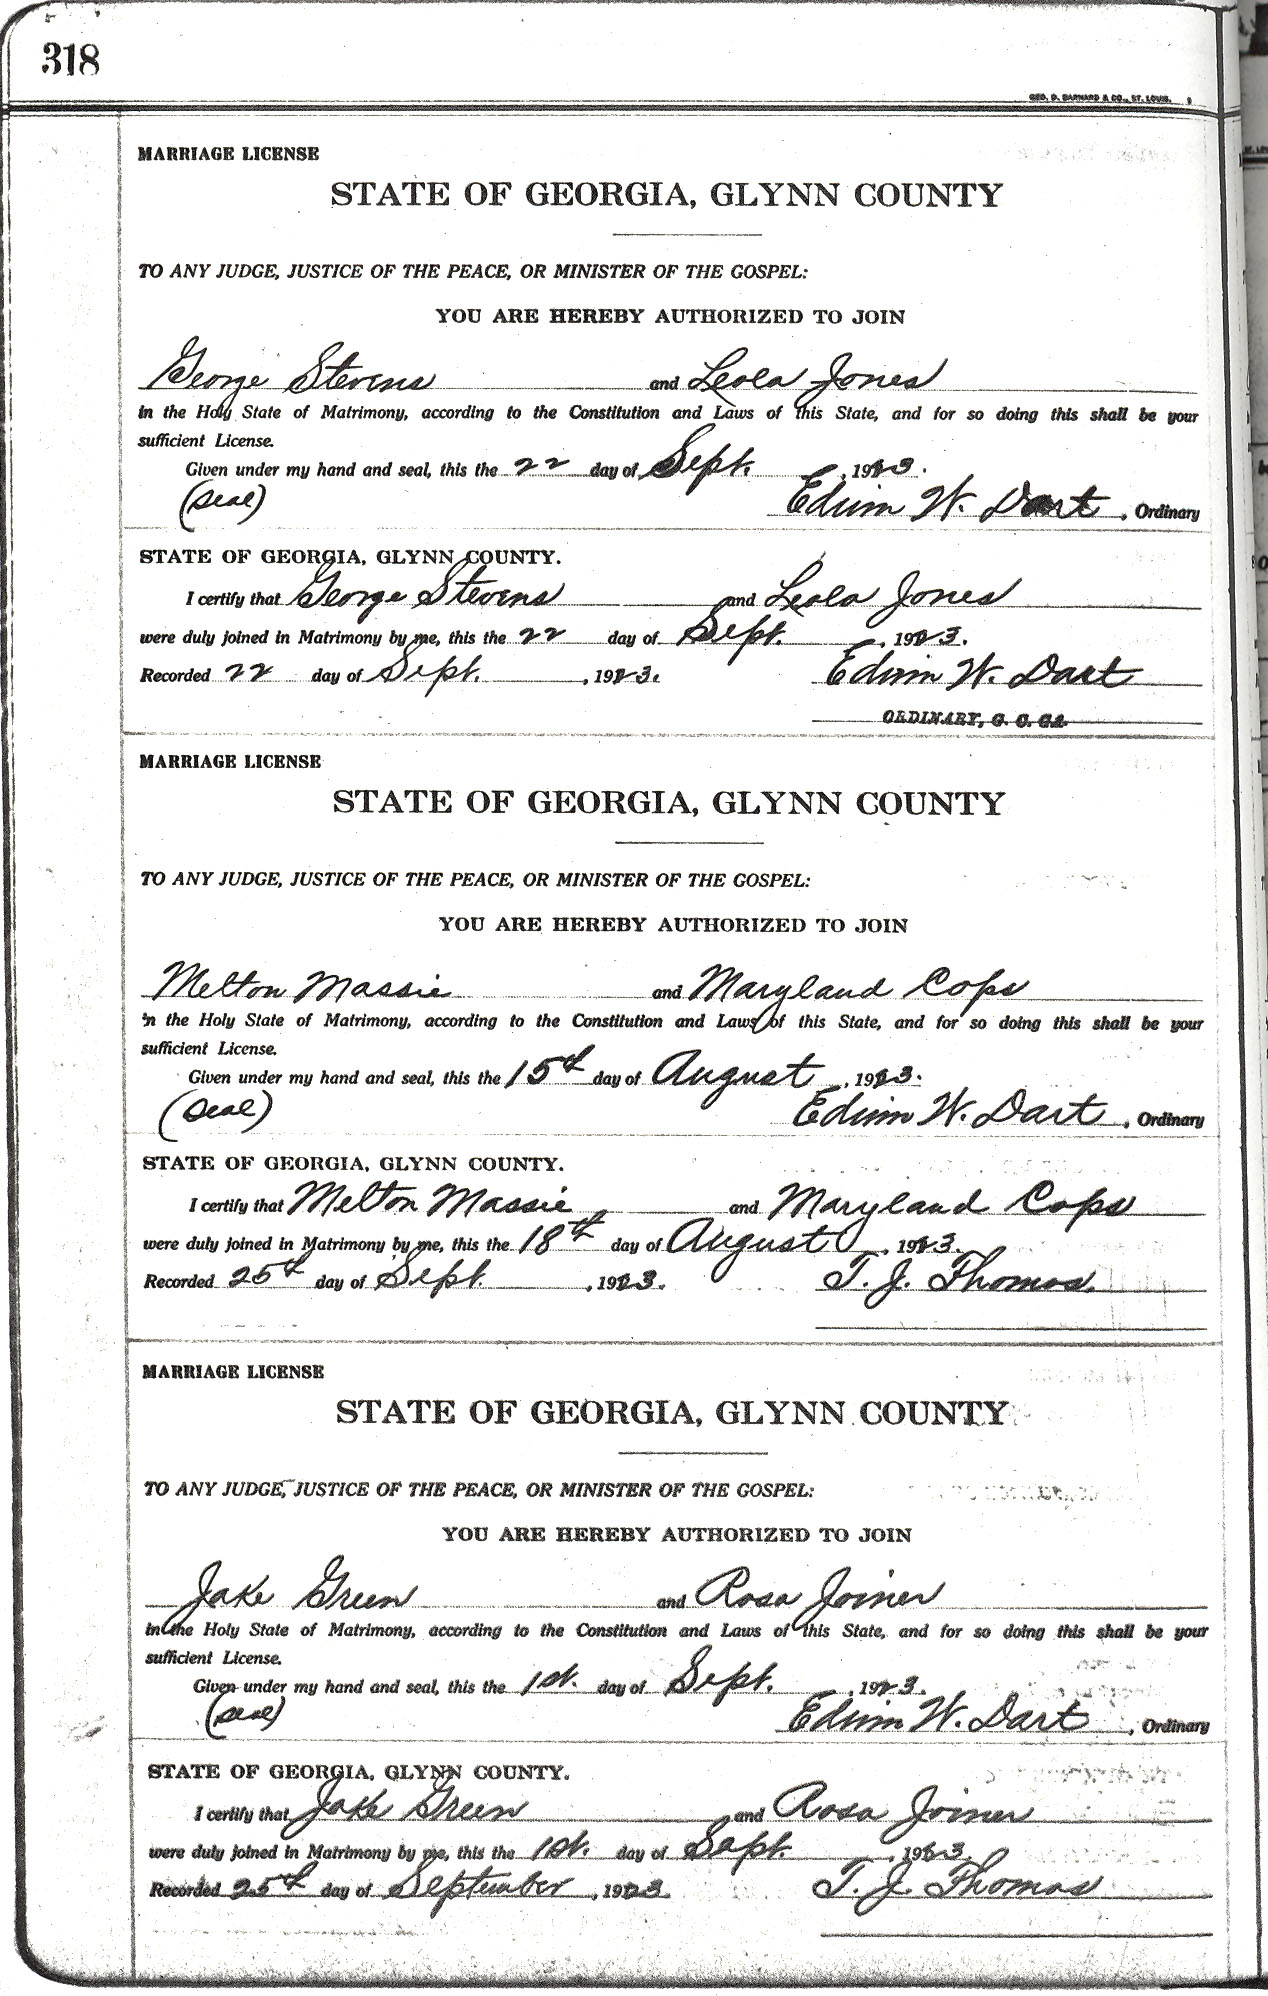 318
GEO. D. BARNARD & CO., ST. LOUIS. 9
MARRIAGE LICENSE
STATE OF GEORGIA, GLYNN COUNTY
TO ANY JUDGE, JUSTICE OF THE PEACE, OR MINISTER OF THE GOSPEL:
YOU ARE HEREBY AUTHORIZED TO JOIN
George Stevens and Leola Jones
in the Holy State of Matrimony, according to the Constitution and Laws of this State, and for so doing this shall be your
sufficient License.
Given under my hand and seal, this the 22 day of Sept. , 1923.
(Seal) Edwin W. Dart , Ordinary
STATE OF GEORGIA, GLYNN COUNTY.
I certify that George Stevens and Leola Jones
were duly joined in Matrimony by me, this the 22 day of Sept. , 1923.
Recorded 22 day of Sept. , 1923. Edwin W. Dart
ORDINARY, G. C. GA.
MARRIAGE LICENSE
STATE OF GEORGIA, GLYNN COUNTY
TO ANY JUDGE, JUSTICE OF THE PEACE, OR MINISTER OF THE GOSPEL:
YOU ARE HEREBY AUTHORIZED TO JOIN
Melton Massie and Maryland Cops
in the Holy State of Matrimony, according to the Constitution and Laws of this State, and for so doing this shall be your
sufficient License.
Given under my hand and seal, this the 15th day of August , 1923.
(Seal) Edwin W. Dart , Ordinary
STATE OF GEORGIA, GLYNN COUNTY.
I certify that Melton Massie and Maryland Cops
were duly joined in Matrimony by me, this the 18th day of August , 1923.
Recorded 25th day of Sept. , 1923. T. J. Thomas.
MARRIAGE LICENSE
STATE OF GEORGIA, GLYNN COUNTY
TO ANY JUDGE, JUSTICE OF THE PEACE, OR MINISTER OF THE GOSPEL:
YOU ARE HEREBY AUTHORIZED TO JOIN
Jake Green and Rosa Joiner
in the Holy State of Matrimony, according to the Constitution and Laws of this State, and for so doing this shall be your
sufficient License.
Given under my hand and seal, this the 1st. day of Sept. , 1923.
(Seal) Edwin W. Dart , Ordinary
STATE OF GEORGIA, GLYNN COUNTY.
I certify that Jake Green and Rosa Joiner
were duly joined in Matrimony by me, this the 1st. day of Sept. , 1923.
Recorded 25th day of September , 1923. T. J. Thomas